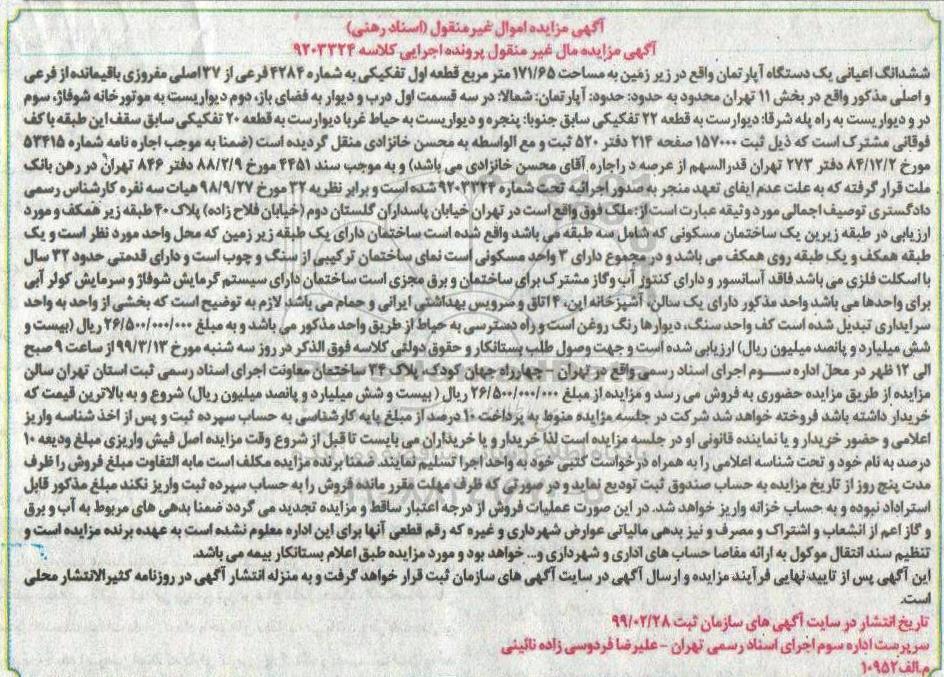 آگهی مزایده اموال غیر منقول (اسناد رهنی)
آگهی مزایده مال غیر منقول پرونده اجرایی کلاسه ۹۲۰۳۳۲۴
ششدانگ اعیانی یک دستگاه آپارتمان واقع در زیر زمین به مساحت ۱۷۱/۶۵ متر مربع قطعه اول تفکیکی به شماره ۴۲۸۴ فرعی از ۳۷ اصلی مفروزی باقیمانده از فرعی
و اصلی مذکور واقع در بخش ۱۱ تهران محدود به حدود: حدود: آپارتمان: شمالا: در سه قسمت اول درب و دیوار به فضای باز، دوم دیواریست به موتورخانه شوفاژ، سوم
در و دیواریست به راه پله شرقا: دیوارست به قطعه ۲۲ تفکیکی سابق جنوبا: پنجره و دیواریست به حیاط غربا دیوارست به قطعه ۲۰ تفکیکی سابق سقف این طبقه با کف
فوقانی مشترک است که ذیل ثبت ۱۵۷۰۰۰ صفحه ۲۱۴ دفتر ۵۲۰ ثبت و مع الواسطه به محسن خانزادی منقل گردیده است (ضمنا به موجب اجاره نامه شماره ۵۳۴۱۵
مورخ ۸۴/۱۲/۲ دفتر ۲۷۳ تهران قدرالسهم از عرصه در اجاره آقای محسن خانزادی می باشد) و به موجب سند ۴۴۵۱ مورخ ۸۸/۲/۹ دفتر ۸۴۶ تهران در رهن بانک
ملت قرار گرفته که به علت عدم ایفای تعهد منجر به صدور اجرائیه تحت شماره ۹۲۰۳۳۲۴ شده است و برابر نظریه ۳۲ مورخ ۹۸/۹/۲۷ هیات سه نفره کارشناس رسمی
دادگستری توصیف اجمالی مورد وثیقه عبارت است از: ملک فوق واقع است در تهران خیابان پاسداران گلستان دوم (خیابان فلاح زاده) پلاک ۴۰ طبقه زیر همکف و مورد
ارزیابی در طبقه زیرین یک ساختمان مسکونی که شامل سه طبقه می باشد واقع شده است ساختمان دارای یک طبقه زیر زمین که محل واحد مورد نظر است و یک
طبقه همکف و یک طبقه روی همکف می باشد و در مجموع دارای ۳ واحد مسکونی است نمای ساختمان ترکیبی از سنگ و چوب است و دارای قدمتی حدود ۳۲ سال
با اسکلت فلزی می باشد فاقد آسانسور و دارای کنتور آب و گاز مشترک برای ساختمان و برق مجزی است ساختمان دارای سیستم گرمایش شوفاژ و سرمایش کولر آبی
برای واحدها می باشد واحد مذکور دارای یک سالن، آشپزخانه این، ۴ اتاق و سرویس بهداشتی ایرانی و حمام می باشد لازم به توضیح است که بخشی از واحد به واحد
سرایداری تبدیل شده است کف واحد سنگ، دیوارها رنگ روغن است و راه دسترسی به حیاط از طریق واحد مذکور می باشد و به مبلغ ۲۶/۵۰۰/۰۰۰/۰۰۰ ریال (بیست و
شش میلیارد و پانصد میلیون ریال) ارزیابی شده است و جهت وصول طلب بستانکار و حقوق دولتی کلاسه فوق الذکر در روز سه شنبه مورخ ۹۹/۳/۱۳ از ساعت ۹ صبح
الی ۱۲ ظهر در محل اداره سوم اجرای اسناد رسمی واقع در تهران - چهارراه جهان کودک، پلاک ۳۴ ساختمان معاونت اجرای اسناد رسمی ثبت استان تهران سالن
مزایده از طریق مزایده حضوری به فروش می رسد و مزایده از مبلغ ۲۶/۵۰۰/۰۰۰/۰۰۰ ریال (بیست و شش میلیارد و پانصد میلیون ریال) شروع و به بالاترین قیمت که
خریدار داشته باشد فروخته خواهد شد شرکت در جلسه مزایده منوط به پرداخت ۱۰ درصد از مبلغ پایه کارشناسی به حساب سپرده ثبت و پس از اخذ شناسه واریز
اعلامی و حضور خریدار و یا نماینده قانونی او در جلسه مزایده است لذا خریدار و یا خریداران می بایست تا قبل از شروع وقت مزایده اصل فیش واریزی مبلغ ودیعه ۱۰
درصد به نام خود و تحت شناسه اعلامی را به همراه درخواست کتبی خود به واحد اجرا تسلیم نمایند. ضمنا برنده مزایده مکلف است مابه التفاوت مبلغ فروش را ظرف
مدت پنج روز از تاریخ مزایده به حساب صندوق ثبت تودیع نماید و در صورتی که ظرف مهلت مقرر مانده فروش را به حساب سپرده ثبت واریز نکند مبلغ مذکور قابل
استرداد نبوده و به حساب خزانه واریز خواهد شد. در این صورت عملیات فروش از درجه اعتبار ساقط و مزایده تجدید می گردد ضمنا بدهی های مربوط به آب و برق
و گاز اعم از انشعاب و اشتراک و مصرف و نیز بدهی مالیاتی عوارض شهرداری و غیره که رقم قطعی آنها برای این اداره معلوم نشده است به عهده برنده مزایده است و
تنظیم سند انتقال موکول به ارائه مفاصا حساب های اداری و شهرداری و... خواهد بود و مورد مزایده طبق اعلام بستانکار بیمه می باشد.
این آگهی پس از تایید نهایی فرآیند مزایده و ارسال آگهی در سایت آگهی های سازمان ثبت قرار خواهد گرفت و به منزله انتشار آگهی در روزنامه کثیرالانتشار محلی
است.
تاریخ انتشار در سایت آگهی های سازمان ثبت ۹۹/۰۲/۲۸
سرپرست اداره سوم اجرای اسناد رسمی تهران - علیرضا فردوسی زاده نائینی
م.الف ۱۰۹۵۲